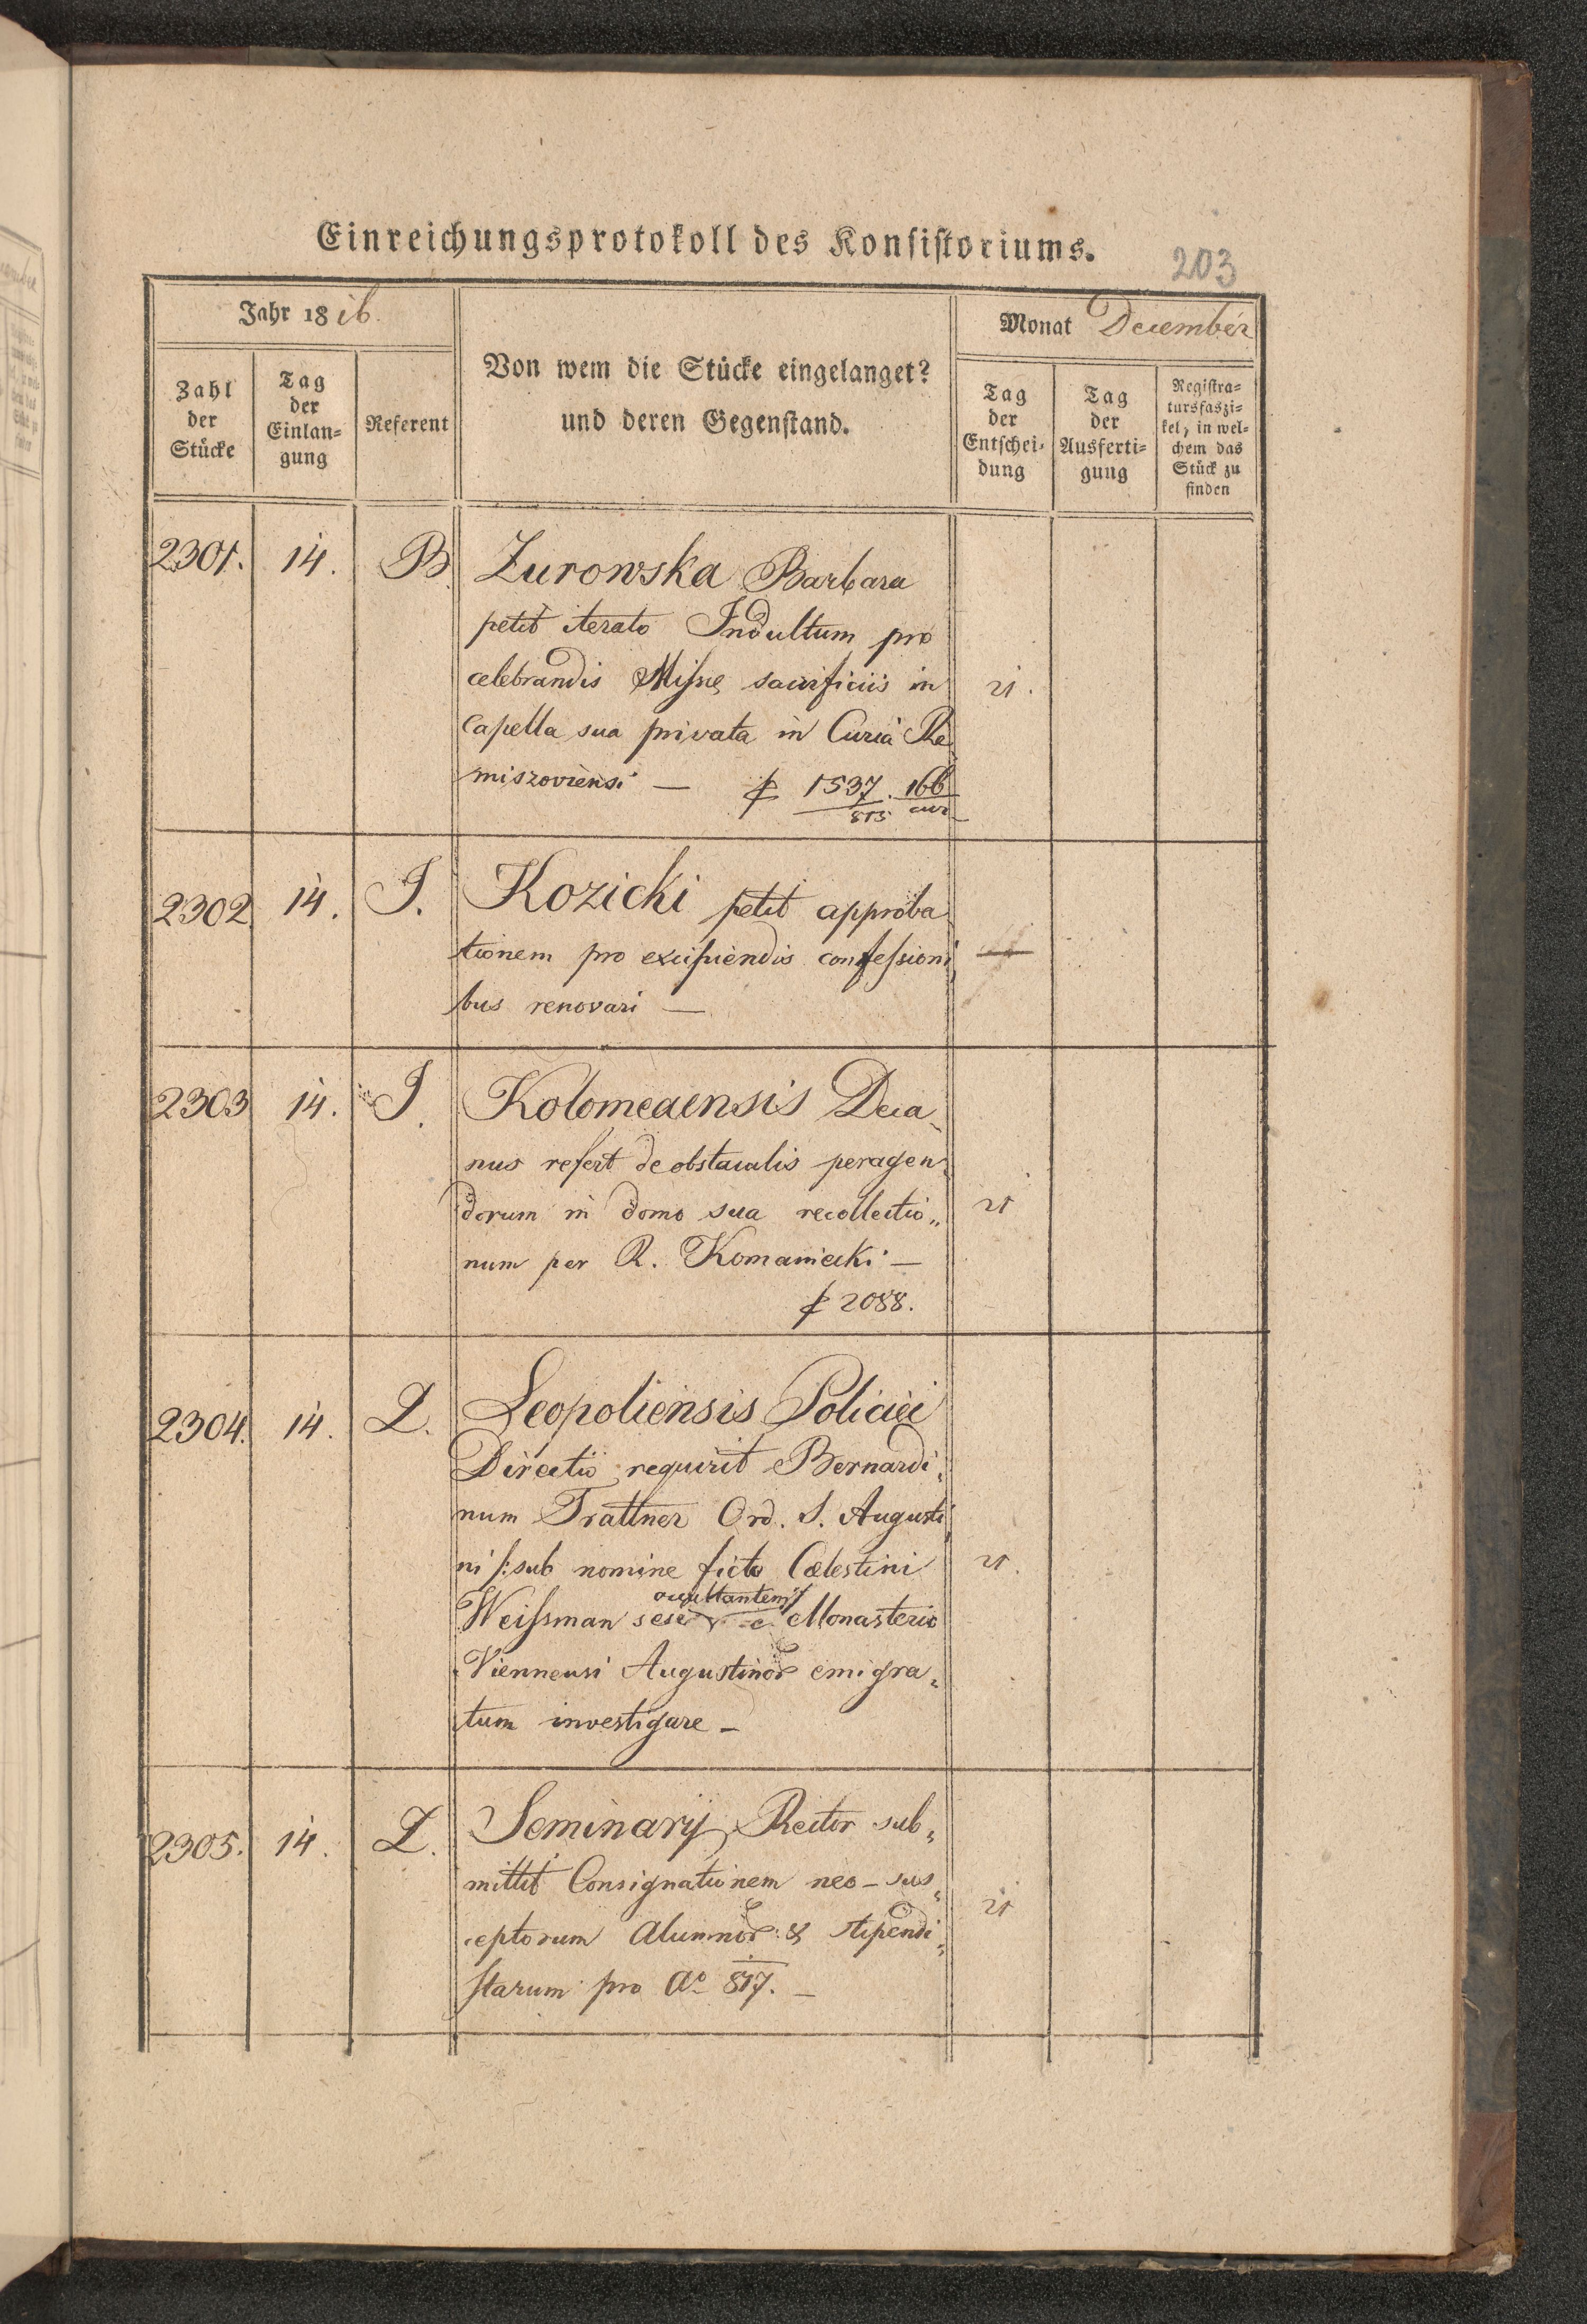 Einreichungsprotokoll des Konsistoriums.
203
Jahr 1816.
Monat December
Zahl der Stücke
Tag der Einlan=gung
Referent
Von wem die Stücke eingelanget?
und deren Gegenstand.
Tag der Entschei=dung
Tag der Ausferti=gung
Registra=tursfaszi=kel, in wel=chem das Stück zu finden
2301. 14. B Zurowska Barbara
petit iterato Indultum pro
celebrandis Missae sacrificiis in 21.
Capella sua privata in Curia Re
miszoviensi — 1537. 166
815 cur
2302. 14. J. Kozicki petit approba
tionem pro excipiendis confessioni
bus renovari —
2303 14. J. Kolomeaensis Deca
nus refert de obstaculis peragen
dorum in domo sua recollectio„ 21
num per R. Komaniecki —
2088.
2304. 14. L. Leopoliensis Policiei
Directio requirit Bernardi
num Trattner Ord. S. Augusti
ni /: sub nomine ficto Cœlestini 21.
Weissman sese occultantem :/ e Monasterio
Viennensi Augustinor emigra
tum investigare —
2305. 14. L. Seminarij Rector sub„
mittit Consignationem neo-sus„ 21
ceptorum Alumnor: & stipendi„
starum pro Ao 817. —